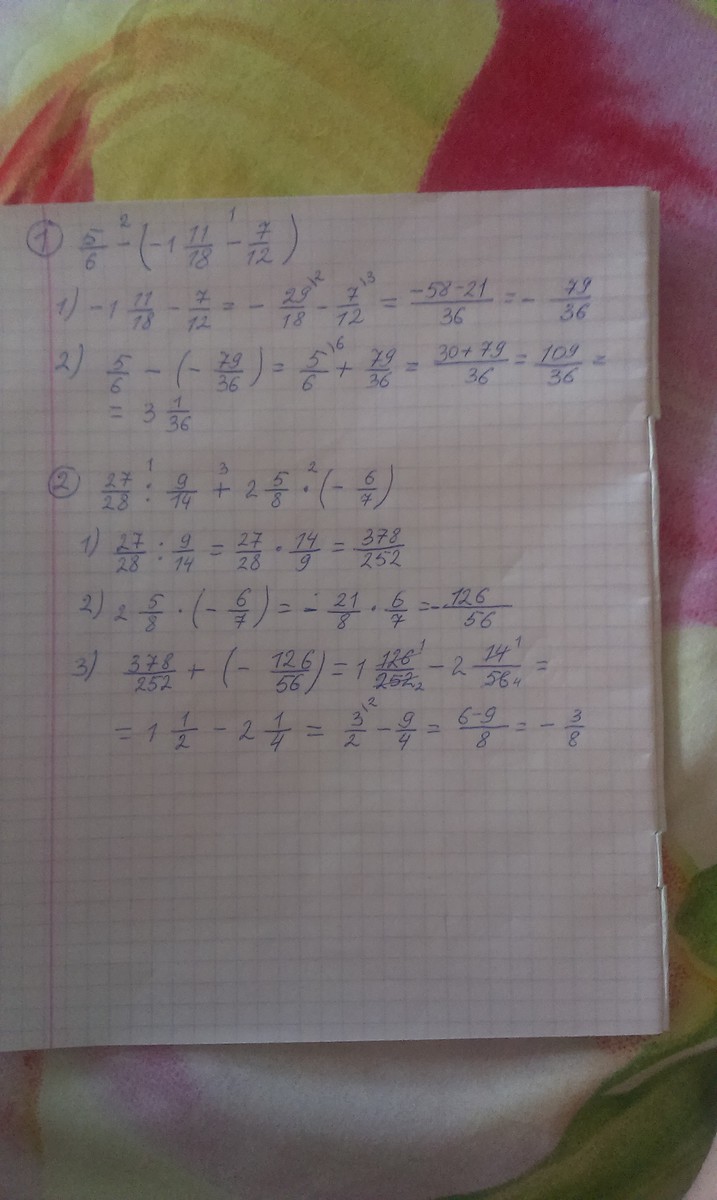 ① 5/6 -² (-1 11/18 -¹ 7/12)
1) -1 11/18 - 7/12 = - 29/18 \2 - 7/12 \3 = (-58-21)/36 = - 79/36
2) 5/6 - (- 79/36) = 5/6 \6 + 79/36 = (30+79)/36 = 109/36 =
= 3 1/36
② 27/28 :¹ 9/14 +³ 2 5/8 ·² (- 6/7)
1) 27/28 : 9/14 = 27/28 · 14/9 = 378/252
2) 2 5/8 · (- 6/7) = - 21/8 · 6/7 = - 126/56
3) 378/252 + (- 126/56) = 1 126¹/252₂ - 2 14¹/56₄ =
= 1 1/2 - 2 1/4 = 3/2 \2 - 9/4 = (6-9)/8 = - 3/8